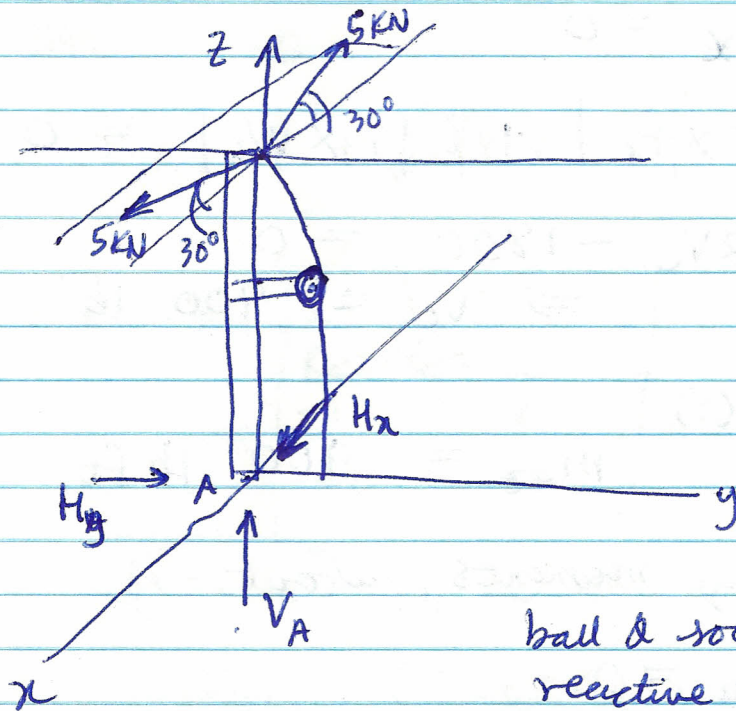 5KN
Z
30°
5KN 30°
Hx
Hy A y
VA
ball & soc
reactive
x